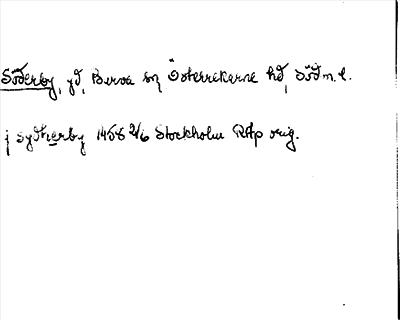 Söderby, gd, Berva sn Österrekarne hd, Södm.l.
j Sydherby 1458 2/6 Stockholm RAp orig.